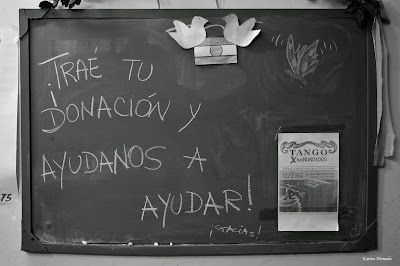 ¡TRAÉ TU
DONACIÓN Y
AYUDANOS A
AYUDAR!
¡GRACIAS!
TANGO
X los INUNDADOS
12/2
75
Karina Hermida